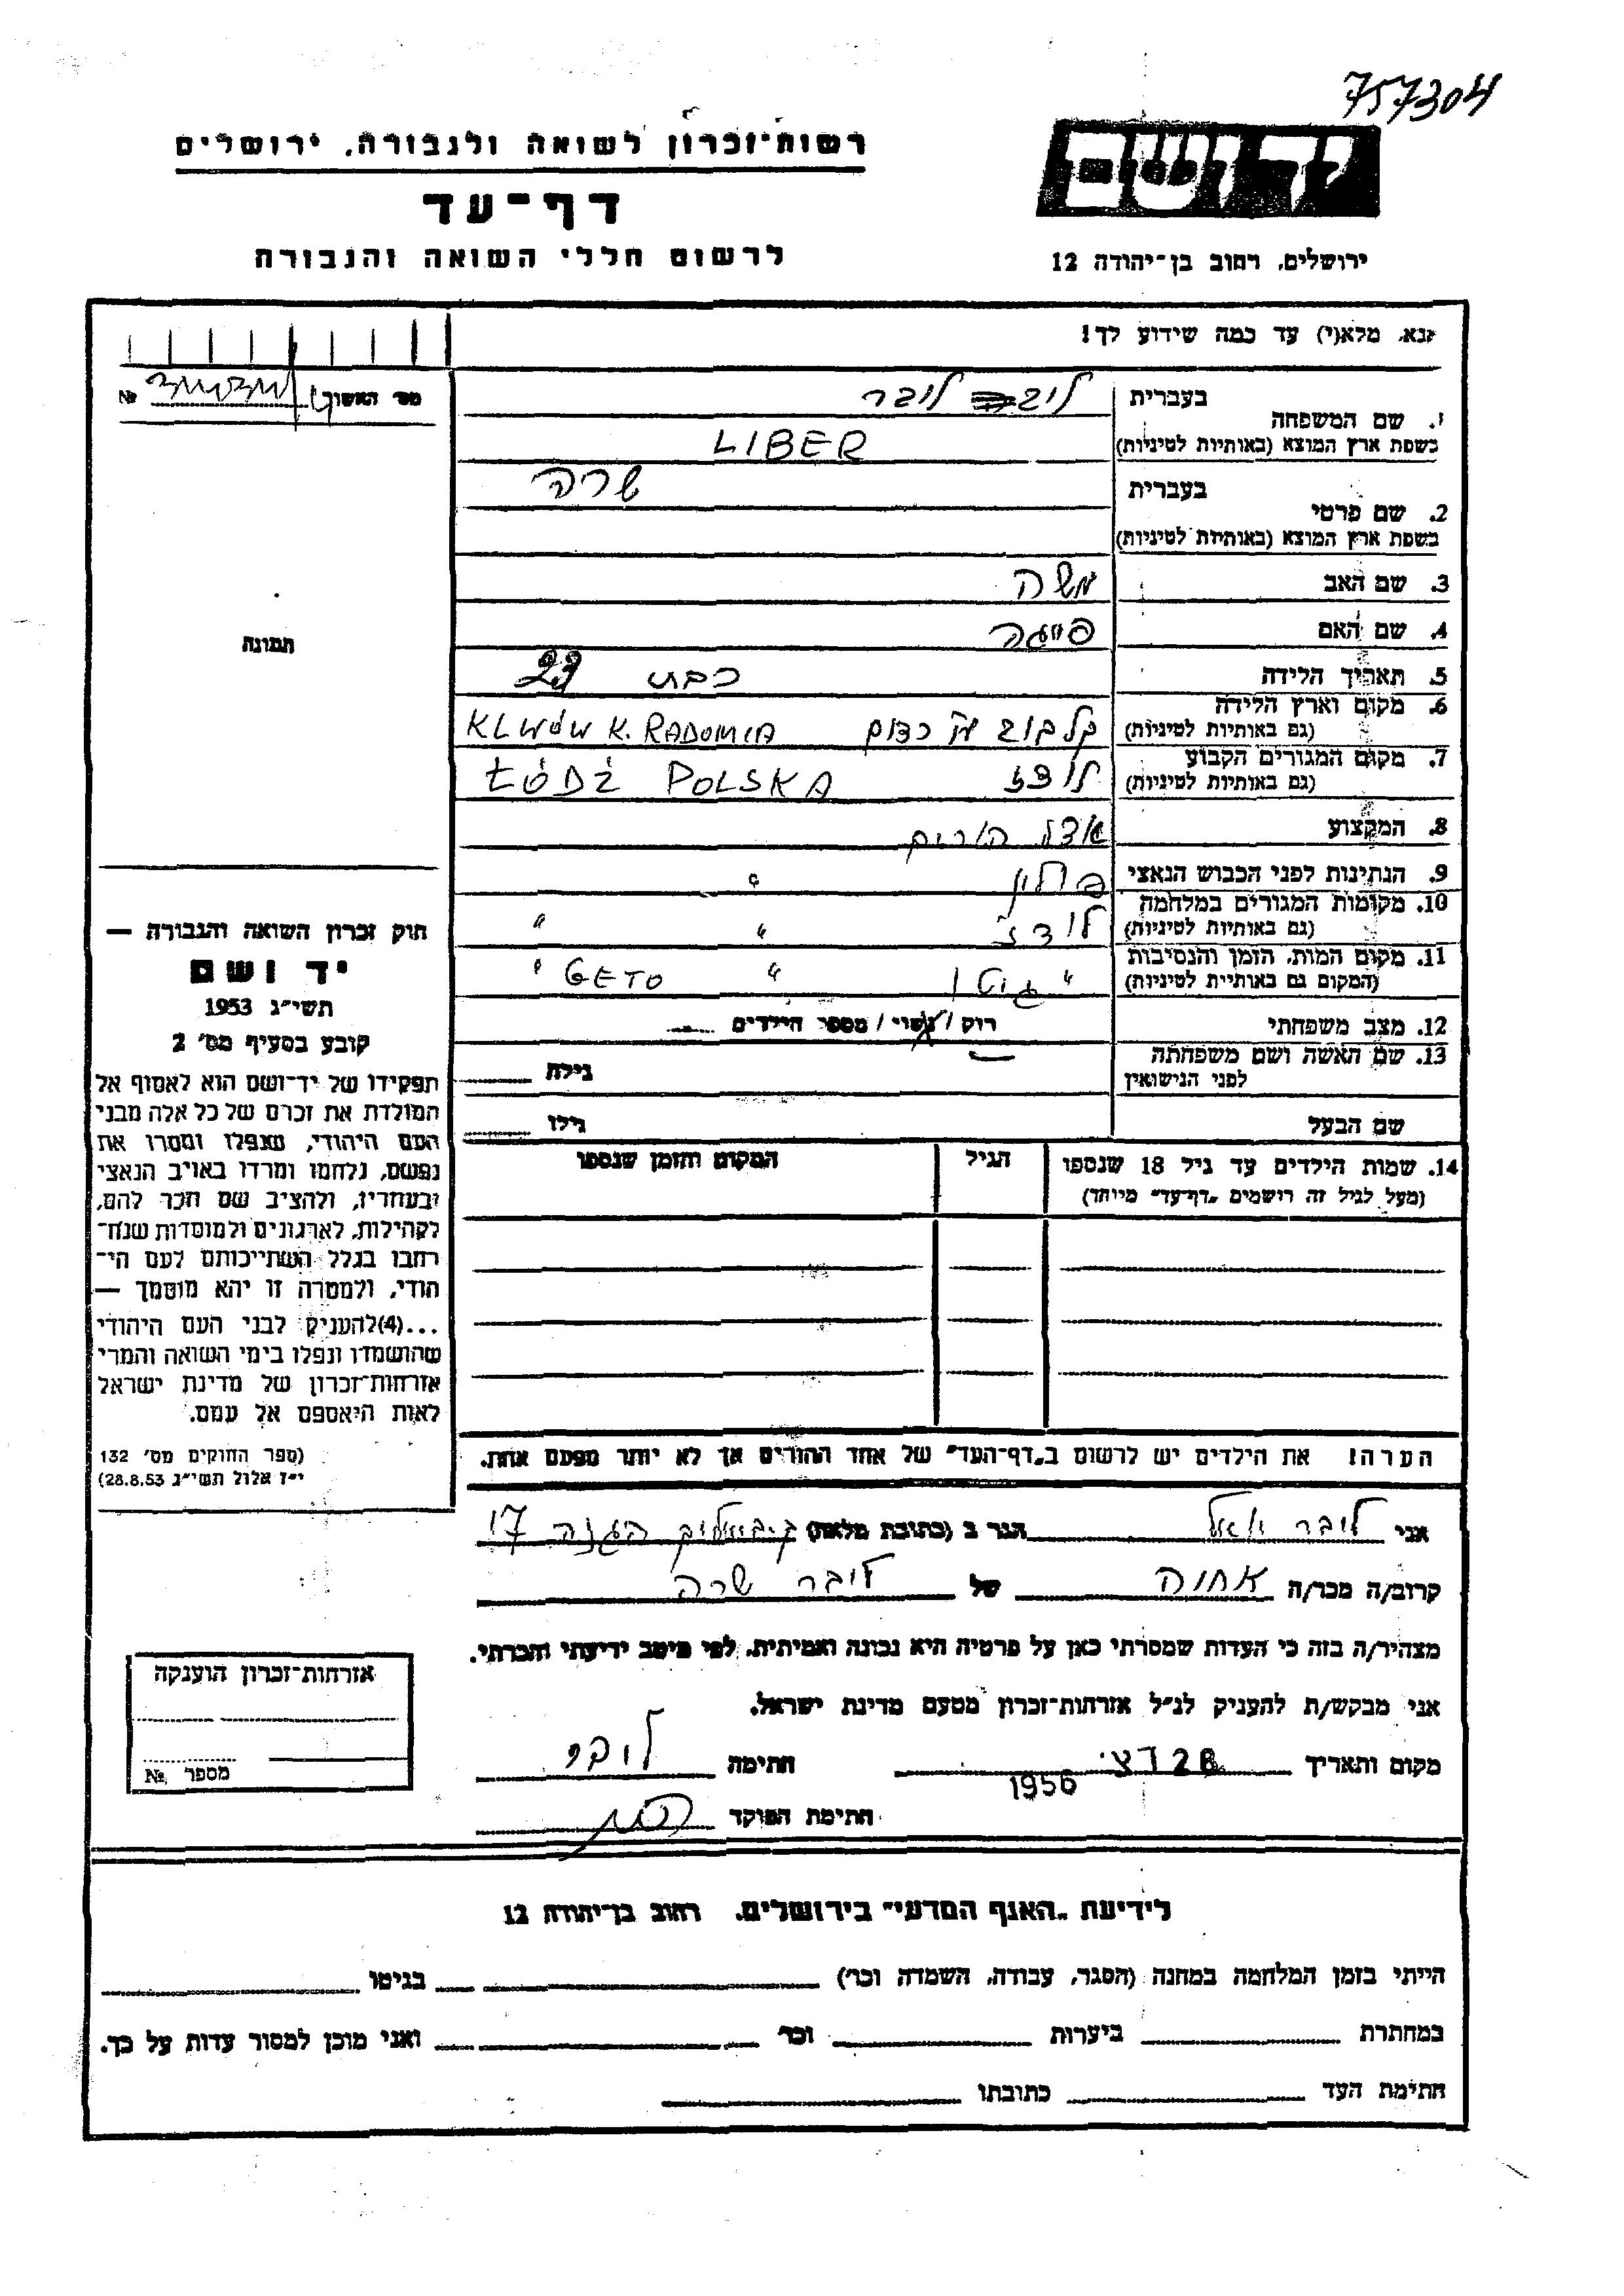 757304
יד ושם
ירושלים, רחוב בן־יהודה 12
רשות־זכרון לשואה ולגבורה, ירושלים
דף־עד
לרשום חללי השואה והגבורה
נא, מלא(י) עד כמה שידוע לך!
בעברית לובר
1. שם המשפחה
בשפת ארץ המוצא (באותיות לטיניות) LIBER
בעברית שרה
2. שם פרטי
בשפת ארץ המוצא (באותיות לטיניות)
3. שם האב משה
4. שם האם פייגה
5. תאריך הלידה כבת 23
6. מקום וארץ הלידה
(גם באותיות לטיניות) KLWÓW K. RADOMIA
7. מקום המגורים הקבוע לודז ŁÓDŹ POLSKA
(גם באותיות לטיניות)
8. המקצוע אצל הורים
9. הנתינות לפני הכבוש הנאצי פולין "
10. מקומות המגורים במלחמה
(גם באותיות לטיניות) לודז " "
11. מקום המות, הזמן והנסיבות
(המקום גם באותיות לטיניות) " גיטו " GETO "
12. מצב משפחתי רוק / נשוי / מספר הילדים
13. שם האשה ושם משפחתה
לפני הנישואין גילה
שם הבעל גילו
14. שמות הילדים עד גיל 18 שנספו הגיל המקום והזמן שנספו
(מעל לגיל זה רושמים „דף־עד" מיוחד)
הערה! את הילדים יש לרשום ב„דף־העד" של אחד ההורים אך לא יותר מפעם אחת.
מס' האשור №
תמונה
חוק זכרון השואה והגבורה —
יד ושם
תשי"ג 1953
קובע בסעיף מס' 2
תפקידו של יד־ושם הוא לאסוף אל
המולדת את זכרם של כל אלה מבני
העם היהודי, שנפלו ומסרו את
נפשם, נלחמו ומרדו באויב הנאצי
ובעוזריו, ולהציב שם וזכר להם,
לקהילות, לארגונים ולמוסדות שנח־
רבו בגלל השתייכותם לעם הי־
הודי, ולמטרה זו יהא מוסמך —
...(4)להעניק לבני העם היהודי
שהושמדו ונפלו בימי השואה והמרי
אזרחות־זכרון של מדינת ישראל
לאות היאספם אל עמם.
(ספר החוקים מס' 132
י"ז אלול תשי"ג 28.8.53)
אני ליבר יואל הגר ב (כתובת מלאה) הגנה 17
קרוב/ה מכר/ה אחיה של ליבר שרה
מצהיר/ה בזה כי העדות שמסרתי כאן על פרטיה היא נכונה ואמיתית, לפי מיטב ידיעתי והכרתי.
אני מבקש/ת להעניק לנ"ל אזרחות־זכרון מטעם מדינת ישראל.
מקום ותאריך 28 דצ. 1956 חתימה ליבר
חתימת הפוקד
אזרחות־זכרון הוענקה
מספר №
לידיעת „האגף המדעי" בירושלים, רחוב בן־יהודה 12
הייתי בזמן המלחמה במחנה (הסגר, עבודה, השמדה וכו') בגיטו
במחתרת ביערות וכו' ואני מוכן למסור עדות על כך.
חתימת העד כתובתו